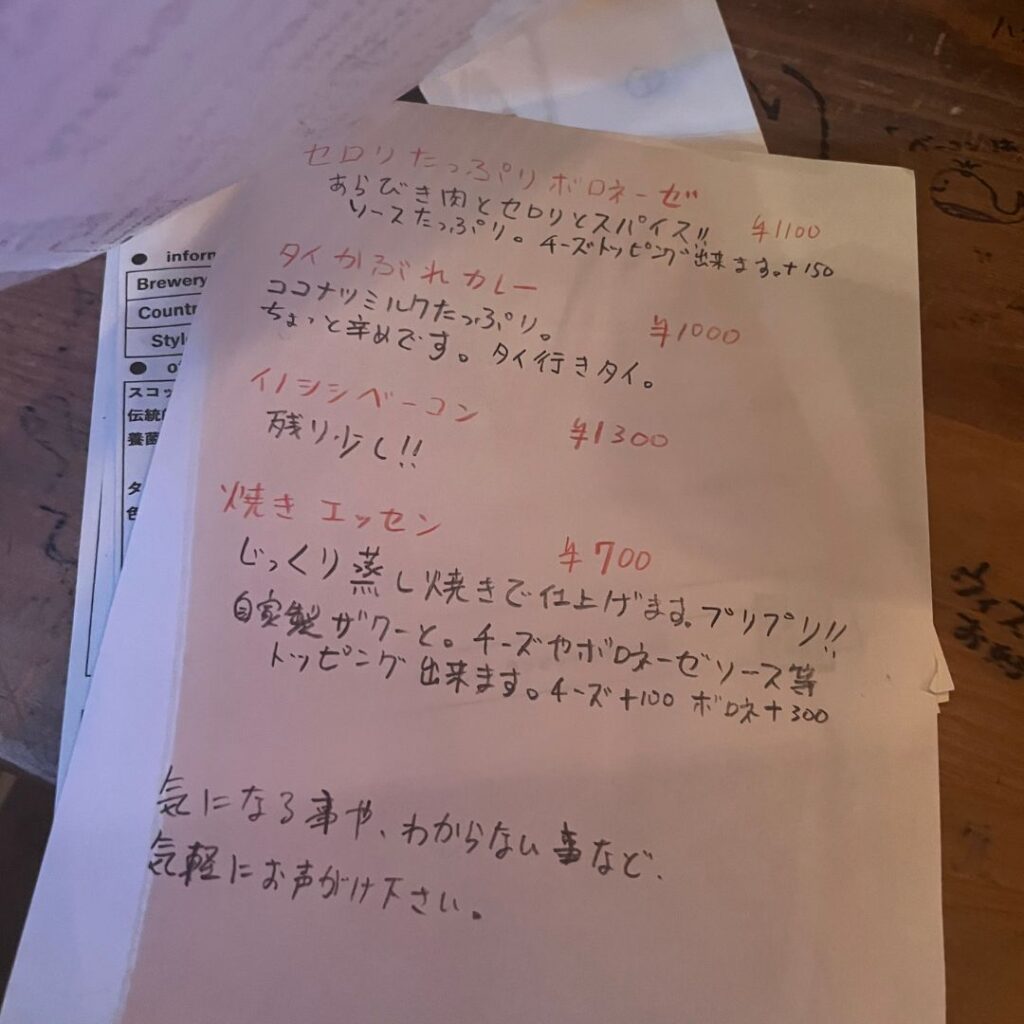 セロリたっぷりボロネーゼ
あらびき肉とセロリとスパイス!! ¥1100
ソースたっぷり。チーズトッピング出来ます。+150
タイかぶれカレー
ココナツミルクたっぷり。 ¥1000
ちょっと辛めです。タイ行きタイ。
イノシシベーコン
残り少し!! ¥1300
焼きエッセン
¥700
じっくり蒸し焼きで仕上げます。プリプリ!!
自家製ザワーと。チーズやボロネーゼソース等
トッピング出来ます。チーズ+100 ボロネ+300
気になる事や、わからない事など、
気軽にお声がけ下さい。
● inforn
Brewery
Countr
Styl
● o
スコッ
伝統
養菌
タ
色
ベーコンは